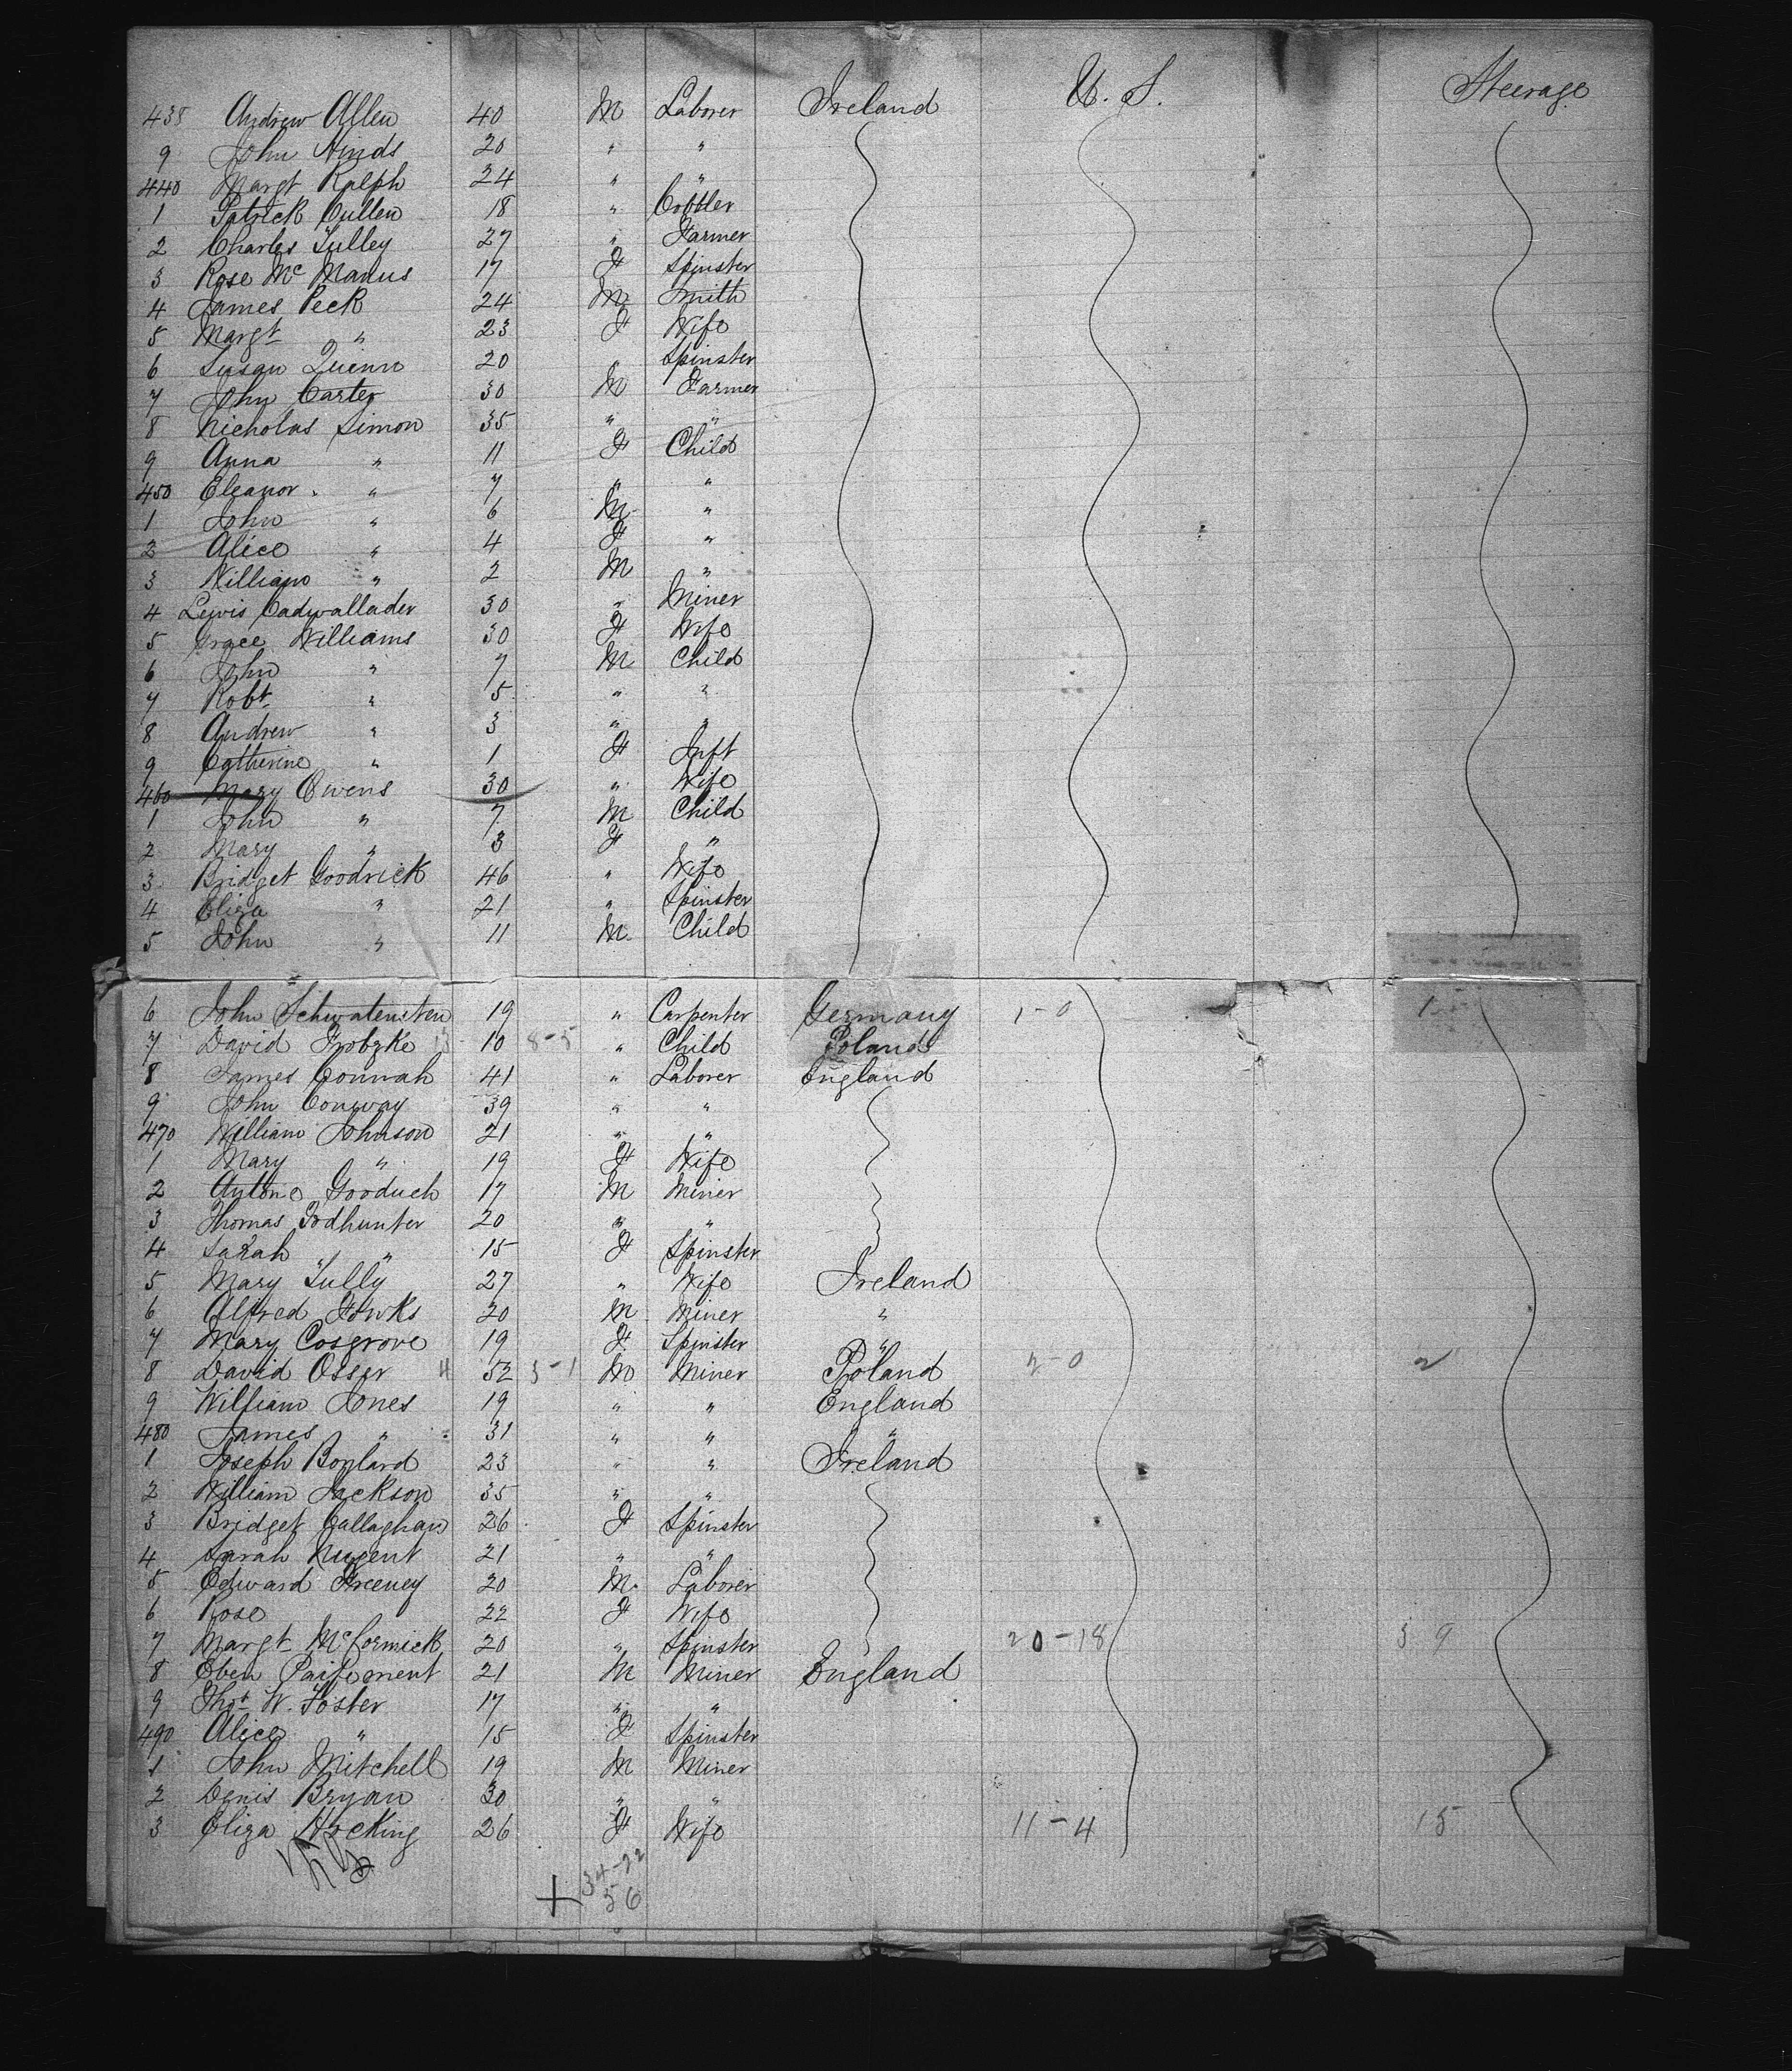 438 Andrew Allen 40 M Laborer Ireland U. S. Steerage
9 John Hinds 20 " "
440 Margt Ralph 24 " "
1 Patrick Cullen 18 " Cobbler
2 Charles Tulley 27 " Farmer
3 Rose Mc Manus 17 F Spinster
4 James Peck 24 M Smith
5 Margt " 23 F Wife
6 Susan Quinn 20 " Spinster
7 John Carter 30 M Farmer
8 Nicholas Simon 35 " "
9 Anna " 11 F Child
450 Eleanor " 7 " "
1 John " 6 M "
2 Alice " 4 F "
3 William " 2 M "
4 Lewis Cadwallader 30 " Miner
5 Grace Williams 30 F Wife
6 John " 7 M Child
7 Robt " 5 " "
8 Andrew " 3 " "
9 Catherine " 1 F Inft
460 Mary Owens 30 " Wife
1 John " 7 M Child
2 Mary " 3 F "
3 Bridget Goodrick 46 " Wife
4 Eliza " 21 " Spinster
5 John " 11 M Child
6 John Schwatensten 19 " Carpenter Germany 1-0
7 David Frobzke 10 8-5 " Child Poland
8 James Connah 41 " Laborer England
9 John Conway 39 " "
470 William Johnson 21 " "
1 Mary " 19 F Wife
2 Antone Gooduch 17 M Miner
3 Thomas Todhunter 20 " "
4 Sarah " 15 F Spinster
5 Mary Tully 27 " Wife Ireland
6 Alfred Fowks 20 M Miner "
7 Mary Cosgrove 19 F Spinster "
8 David Osser 4 52 3-1 M Miner Poland 2-0 2
9 William Jones 19 " " England
480 James " 31 " " "
1 Joseph Boylard 23 " " Ireland
2 William Jackson 35 " "
3 Bridget Callaghan 26 F Spinster
4 Sarah Nugent 21 " "
5 Edward Freeney 20 M Laborer
6 Rose 22 F Wife
7 Margt McCormick 20 " Spinster 20-18 39
8 Eben 21 M Miner England
9 Thos W. Foster 17 " "
490 Alice " 15 F Spinster
1 John Mitchell 19 M Miner
2 Denis Bryan 30 " "
3 Eliza Hocking 26 F Wife 11-4 15
34-22
56